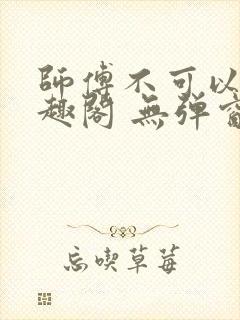 師傅不可以
趣閣 無彈窗
忘喫草莓